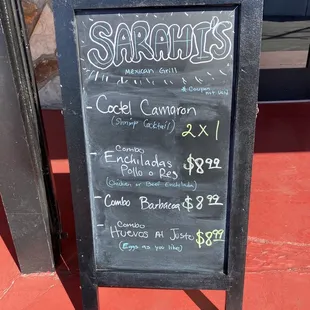 SARAHI'S
Mexican Grill
*-Coupon
Not Valid
- Coctel Camaron
(Shrimp Cocktail)
2 X 1
- Combo
Enchiladas
Pollo o Res
$8.99
(Chicken or Beef Enchilada)
- Combo Barbacoa $8.99
- Combo
Huevos Al Justo $8.99
(Eggs as you like)